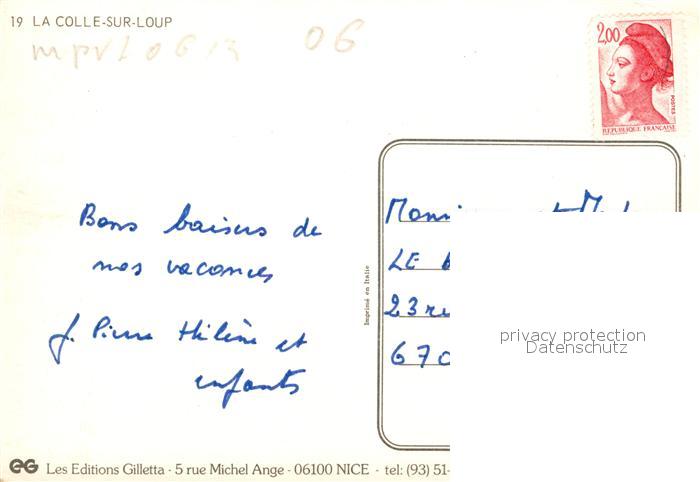 19 LA COLLE-SUR-LOUP
06
2,00
POSTES
REPUBLIQUE FRANÇAISE
Bons baisers de
nos vacances
J. Pierre Hélène et
enfants
Imprimé en Italie
LE
23
670
privacy protection
Datenschutz
EG Les Editions Gilletta · 5 rue Michel Ange · 06100 NICE · tel: (93) 51-